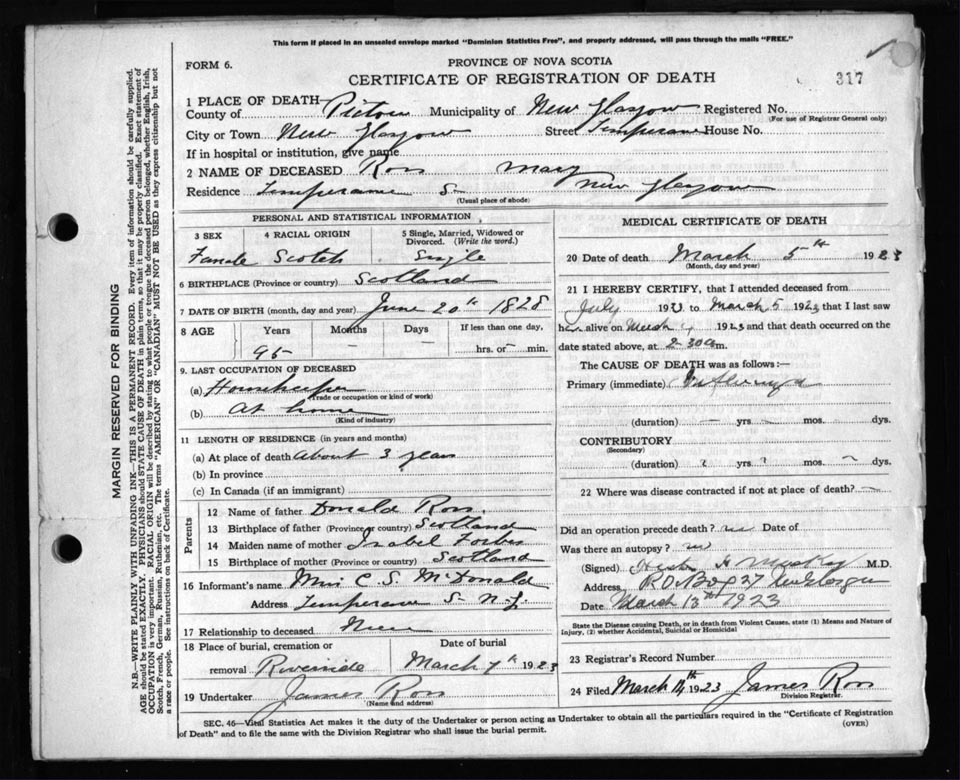 This form if placed in an unsealed envelope marked "Dominion Statistics Free", and properly addressed, will pass through the mails "FREE."
FORM 6.
PROVINCE OF NOVA SCOTIA
CERTIFICATE OF REGISTRATION OF DEATH
317
1 PLACE OF DEATH
County of Pictou Municipality of New Glasgow Registered No.
(For use of Registrar General only)
City or Town New Glasgow Street Temperance House No.
If in hospital or institution, give name
2 NAME OF DECEASED Ross Mary
Residence Temperance S New Glasgow
(Usual place of abode)
PERSONAL AND STATISTICAL INFORMATION
3 SEX 4 RACIAL ORIGIN 5 Single, Married, Widowed or Divorced. (Write the word.)
Female Scotch Single
6 BIRTHPLACE (Province or country) Scotland
7 DATE OF BIRTH (month, day and year) June 20th 1828
8 AGE Years Months Days If less than one day,
95 – – hrs. or – min.
9. LAST OCCUPATION OF DECEASED
(a) Housekeeper
(Trade or occupation or kind of work)
(b) At home
(Kind of industry)
11 LENGTH OF RESIDENCE (in years and months)
(a) At place of death About 3 years
(b) In province
(c) In Canada (if an immigrant)
Parents
12 Name of father Donald Ross.
13 Birthplace of father (Province or country) Scotland
14 Maiden name of mother Isabel Forbes
15 Birthplace of mother (Province or country) Scotland
16 Informant's name C. S. McDonald
Address Temperance S- N-G.
17 Relationship to deceased Niece
18 Place of burial, cremation or removal Riverside
Date of burial March 7th 1923
19 Undertaker James Ross
(Name and address)
MEDICAL CERTIFICATE OF DEATH
20 Date of death March 5th 1923
(Month, day and year)
21 I HEREBY CERTIFY, that I attended deceased from
July 19 to March 5 1923 that I last saw
her alive on March 1923 and that death occurred on
date stated above, at 2-30 a m.
The CAUSE OF DEATH was as follows:—
Primary (immediate)
(duration) – yrs – mos. dys.
CONTRIBUTORY
(Secondary)
(duration) yrs. mos. dys.
22 Where was disease contracted if not at place of death? –
Did an operation precede death? no Date of
Was there an autopsy? no
(Signed) M.D.
Address New Glasgow
Date March 13th 1923
State the Disease causing Death, or in death from Violent Causes, state (1) Means and Nature of Injury, (2) whether Accidental, Suicidal or Homicidal
23 Registrar's Record Number
24 Filed March 14th 1923 James Ross
Division Registrar.
SEC. 46—Vital Statistics Act makes it the duty of the Undertaker or person acting as Undertaker to obtain all the particulars required in the "Certificate of Registration
of Death" and to file the same with the Division Registrar who shall issue the burial permit.
(OVER)
MARGIN RESERVED FOR BINDING
N.B.—WRITE PLAINLY WITH UNFADING INK—THIS IS A PERMANENT RECORD. Every item of information should be carefully supplied.
AGE should be stated EXACTLY. PHYSICIANS should STATE CAUSE OF DEATH in plain terms, so that it may be properly classified. Exact statement of
OCCUPATION is very important. RACIAL ORIGIN will be described by stating to what people or tongue the deceased person belonged, whether English, Irish,
Scotch, French, German, Russian, Ruthenian, etc. The terms "AMERICAN" or "CANADIAN" MUST NOT BE USED as they express citizenship but not
a race or people. See instructions on back of Certificate.